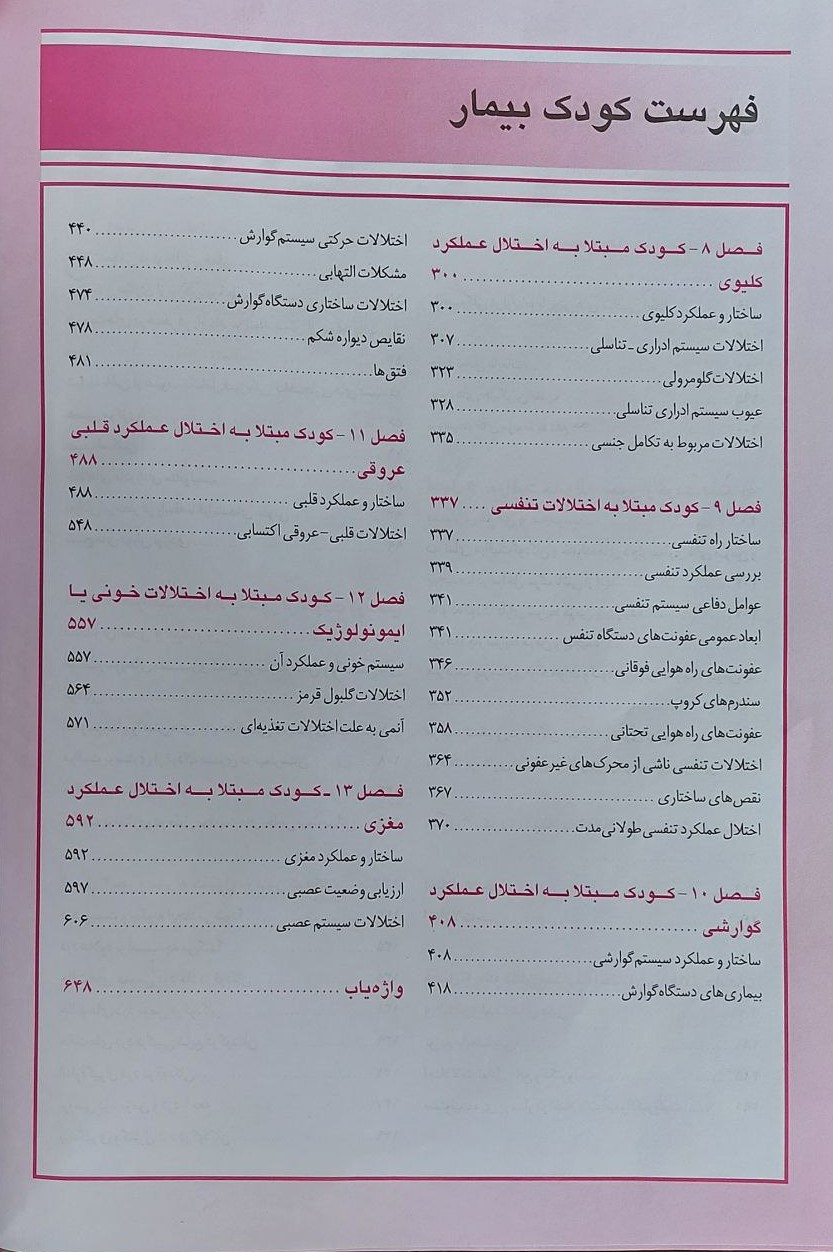 فهرست کودک بیمار
فصل ۸ - کودک مبتلا به اختلال عملکرد
کلیوی ........................................ ۳۰۰
ساختار و عملکرد کلیوی ........................................ ۳۰۰
اختلالات سیستم ادراری - تناسلی ........................................ ۳۰۷
اختلالات گلومرولی ........................................ ۳۲۳
عیوب سیستم ادراری تناسلی ........................................ ۳۲۸
اختلالات مربوط به تکامل جنسی ........................................ ۳۳۵
فصل ۹ - کودک مبتلا به اختلالات تنفسی .... ۳۳۷
ساختار راه تنفسی ........................................ ۳۳۷
بررسی عملکرد تنفسی ........................................ ۳۳۹
عوامل دفاعی سیستم تنفسی ........................................ ۳۴۱
ابعاد عمومی عفونت‌های دستگاه تنفس ........................................ ۳۴۱
عفونت‌های راه هوایی فوقانی ........................................ ۳۴۶
سندرم‌های کروپ ........................................ ۳۵۲
عفونت‌های راه هوایی تحتانی ........................................ ۳۵۸
اختلالات تنفسی ناشی از محرک‌های غیر عفونی ........................................ ۳۶۴
نقص‌های ساختاری ........................................ ۳۶۷
اختلال عملکرد تنفسی طولانی‌مدت ........................................ ۳۷۰
فصل ۱۰ - کودک مبتلا به اختلال عملکرد
گوارشی ........................................ ۴۰۸
ساختار و عملکرد سیستم گوارشی ........................................ ۴۰۸
بیماری‌های دستگاه گوارش ........................................ ۴۱۸
اختلالات حرکتی سیستم گوارش ........................................ ۴۴۰
مشکلات التهابی ........................................ ۴۴۸
اختلالات ساختاری دستگاه گوارش ........................................ ۴۷۴
نقایص دیواره شکم ........................................ ۴۷۸
فتق‌ها ........................................ ۴۸۱
فصل ۱۱ - کودک مبتلا به اختلال عملکرد قلبی
عروقی ........................................ ۴۸۸
ساختار و عملکرد قلبی ........................................ ۴۸۸
اختلالات قلبی - عروقی اکتسابی ........................................ ۵۴۸
فصل ۱۲ - کودک مبتلا به اختلالات خونی یا
ایمونولوژیک ........................................ ۵۵۷
سیستم خونی و عملکرد آن ........................................ ۵۵۷
اختلالات گلبول قرمز ........................................ ۵۶۴
آنمی به علت اختلالات تغذیه‌ای ........................................ ۵۷۱
فصل ۱۳ - کودک مبتلا به اختلال عملکرد
مغزی ........................................ ۵۹۲
ساختار و عملکرد مغزی ........................................ ۵۹۲
ارزیابی وضعیت عصبی ........................................ ۵۹۷
اختلالات سیستم عصبی ........................................ ۶۰۶
واژه‌یاب ........................................ ۶۴۸